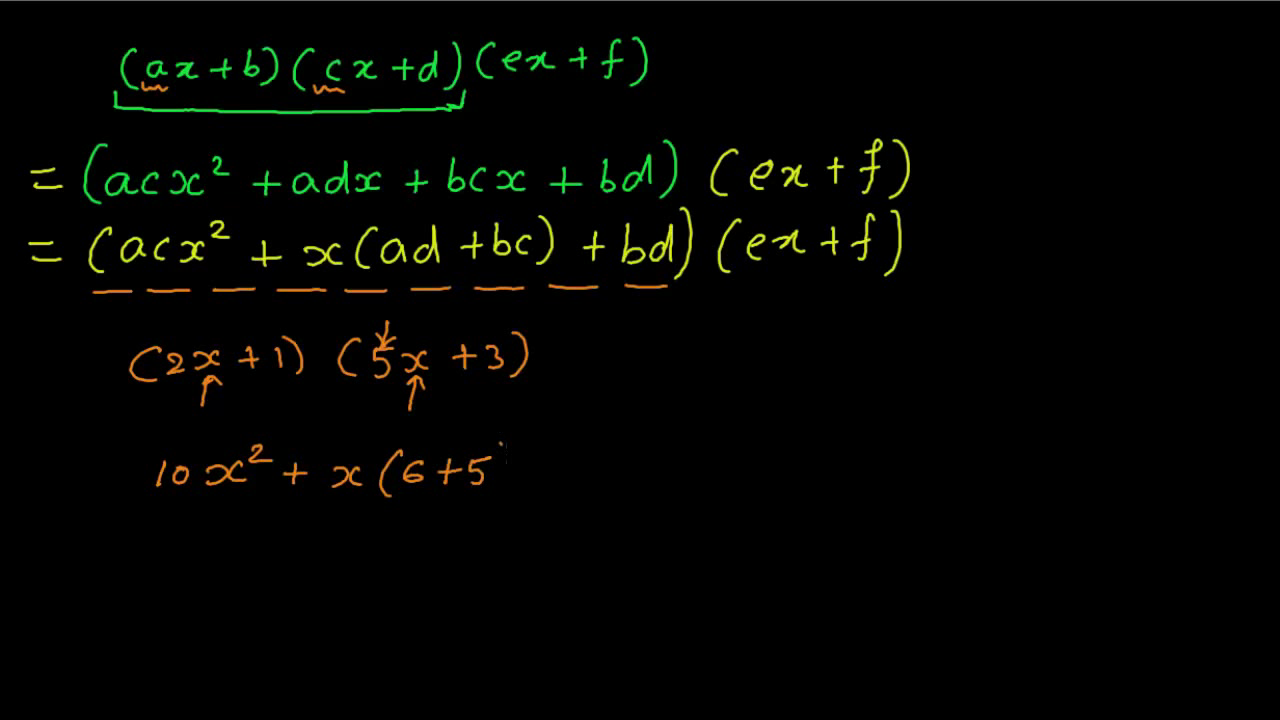 (ax+b)(cx+d)(ex+f)
= (acx² + adx + bcx + bd) (ex+f)
= (acx² + x(ad+bc) + bd) (ex+f)
(2x+1) (5x+3)
10x² + x(6+5